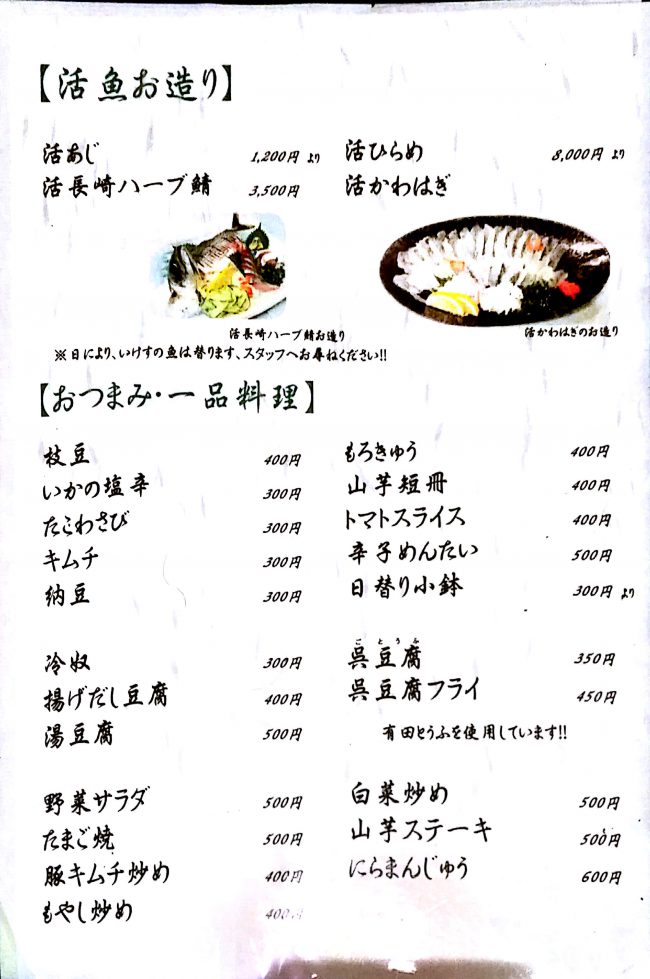 【活魚お造り】
活あじ 1,200円 より
活長崎ハーブ鯖 3,500円
活ひらめ 8,000円 より
活かわはぎ
活長崎ハーブ鯖お造り
活かわはぎのお造り
※日により、いけすの魚は替ります、スタッフへお尋ねください!!
【おつまみ・一品料理】
枝豆 400円
いかの塩辛 300円
たこわさび 300円
キムチ 300円
納豆 300円
もろきゅう 400円
山芋短冊 400円
トマトスライス 400円
辛子めんたい 500円
日替り小鉢 300円 より
冷奴 300円
揚げだし豆腐 400円
湯豆腐 500円
ごとうふ
呉豆腐 350円
呉豆腐フライ 450円
有田とうふを使用しています!!
野菜サラダ 500円
たまご焼 500円
豚キムチ炒め 400円
もやし炒め 400円
白菜炒め 500円
山芋ステーキ 500円
にらまんじゅう 600円